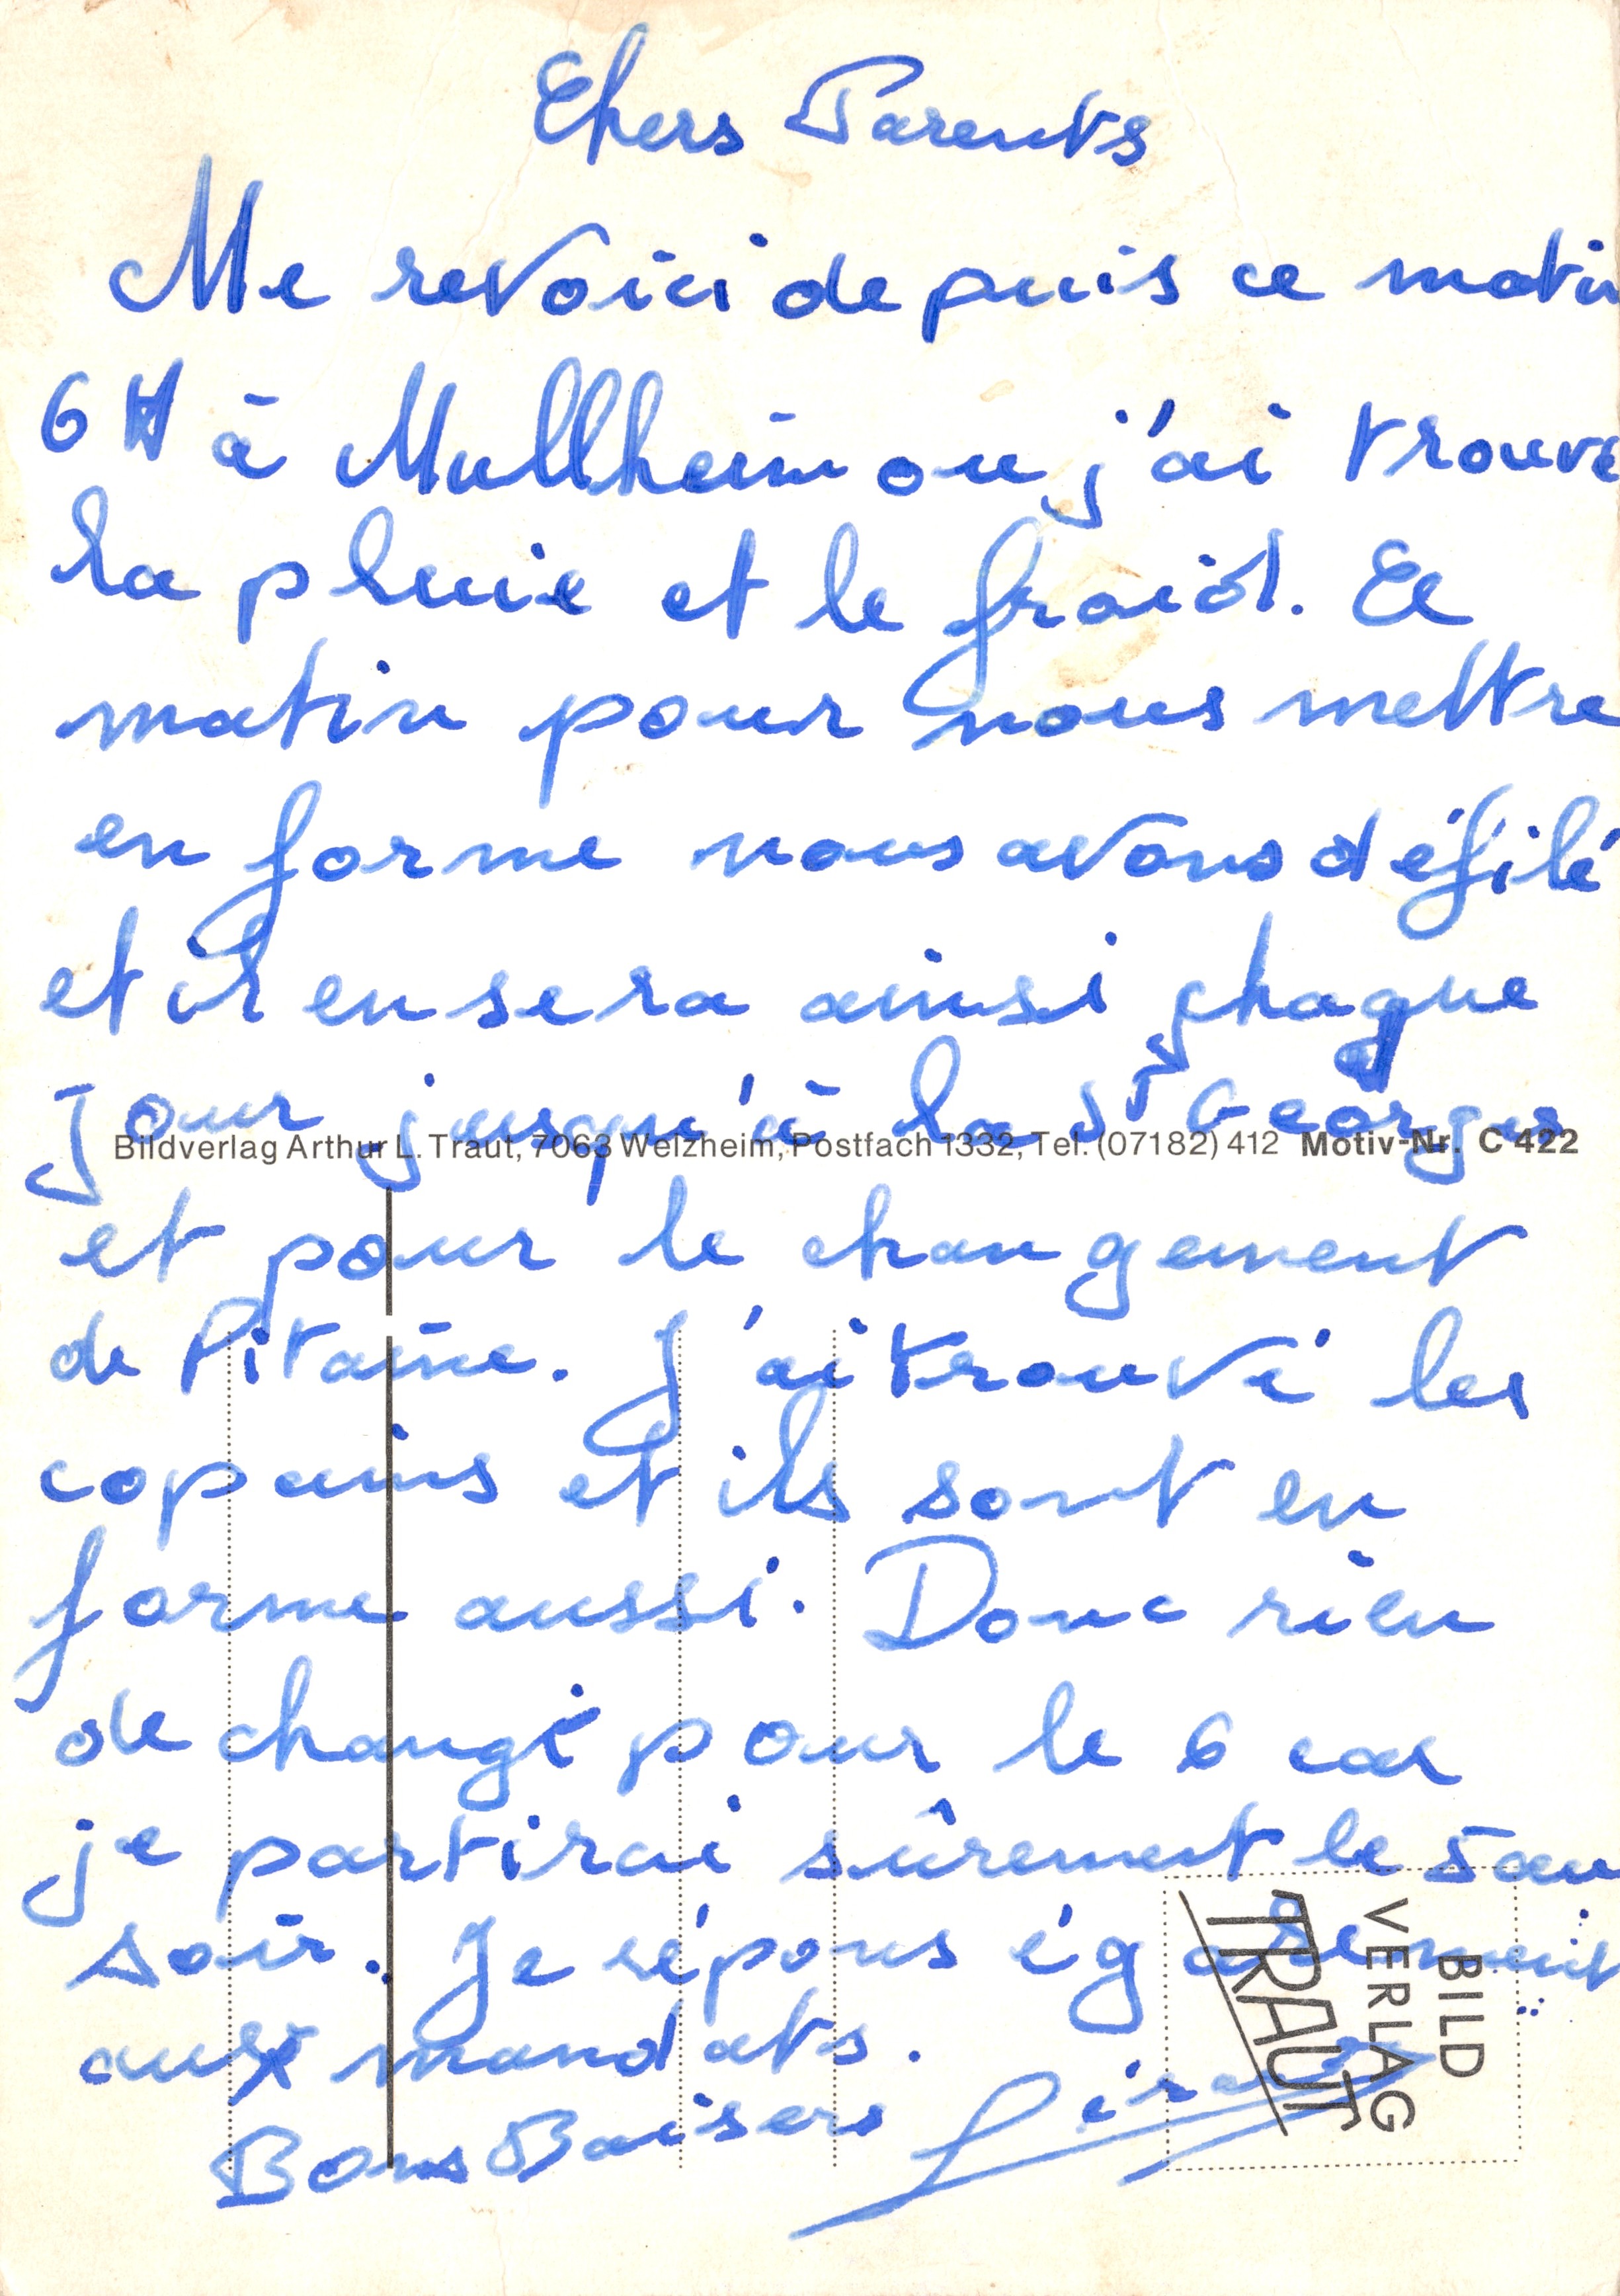 Chers Parents
Me revoici depuis ce matin
6 H à Mullheim ou j'ai trouvé
la pluie et le froid. Ce
matin pour nous mettre
en forme nous avons défilé
et il en sera ainsi chaque
jour jusqu'à la St Georges
Bildverlag Arthur L. Traut, 7063 Welzheim, Postfach 1332, Tel. (07182) 412 Motiv-Nr. C 422
et pour le changement
de Pitaine. J'ai trouvé les
copains et ils sont en
forme aussi. Donc rien
de changé pour le 6 car
je partirai sûrement le 5 au
soir. Je répons également
aux mandats.
Bons Baisers
BILD
VERLAG
TRAUT